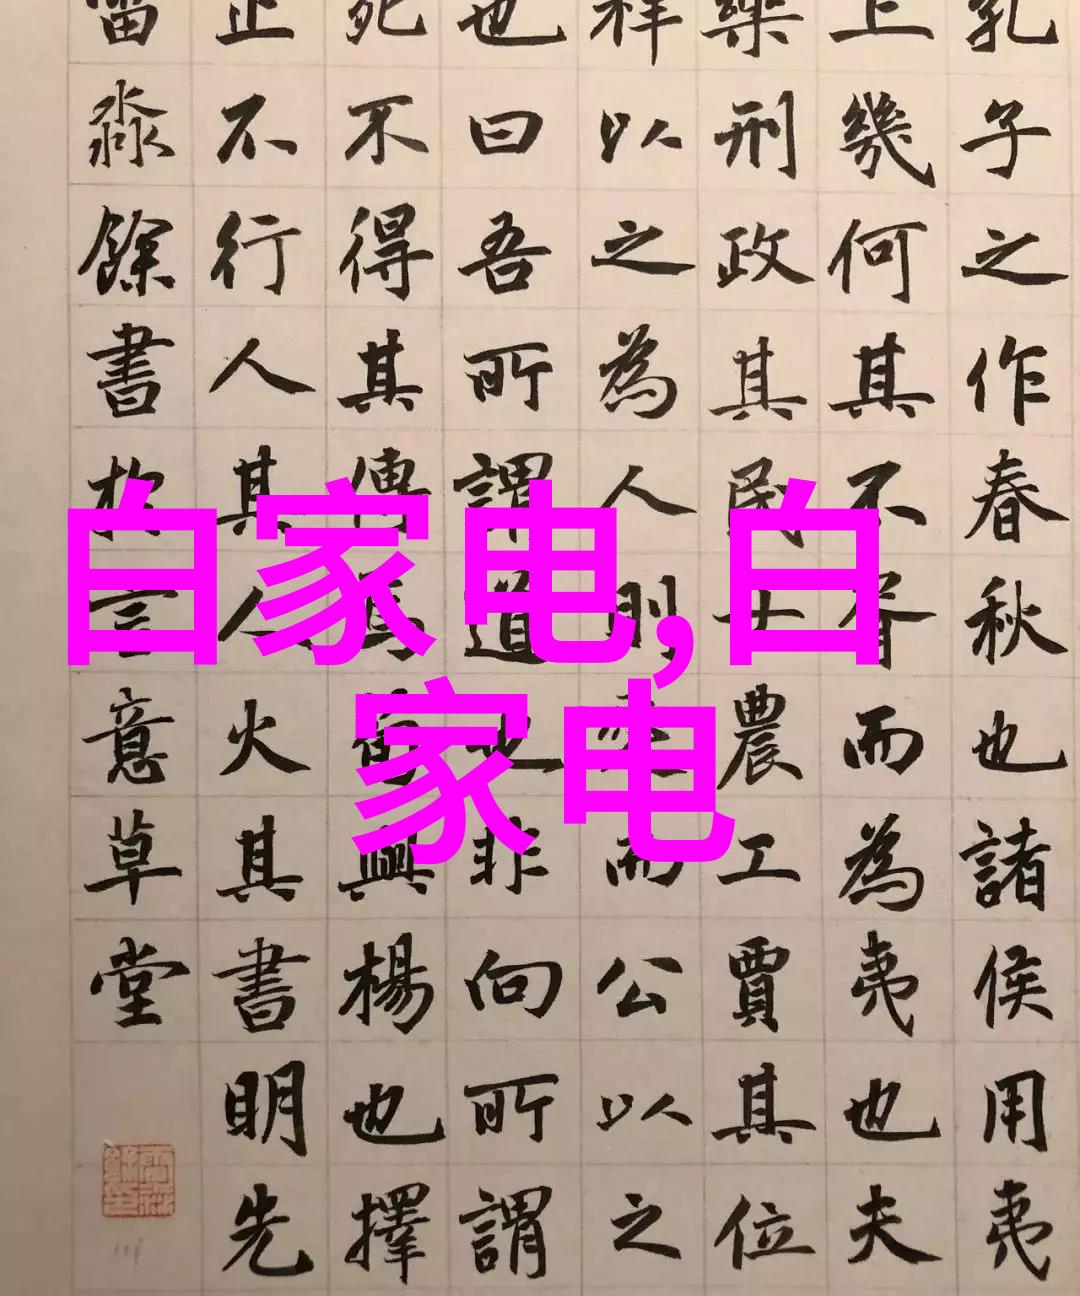 孔子之作春秋也諸侯用夷
上幾何其不胥而為夷也夫
樂刑政其民士農工賈其位
祥以之為人則愛而公以之
也曰吾所謂道也非向所謂
死不得其傳焉荀與楊也擇
止不行人其人火其書明先
淼餘書於意草堂
白家电,白
家电